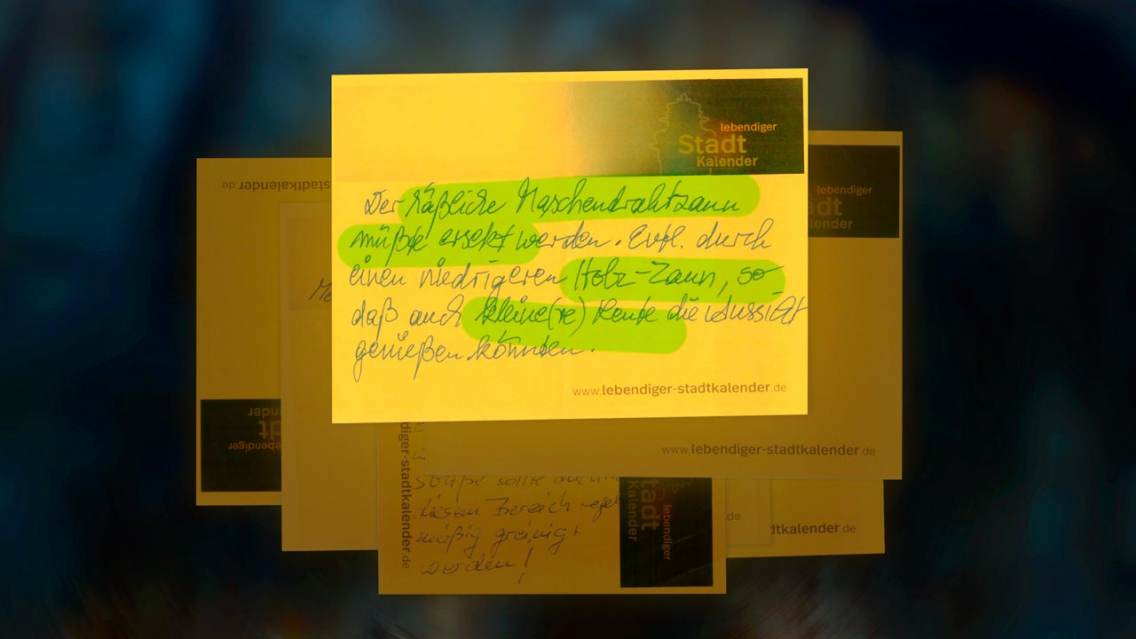 lebendiger
Stadt
Kalender
Der häßliche Maschendrahtzaun
müßte ersetzt werden. Evtl. durch
einen niedrigeren Holz-Zaun, so
daß auch kleine(re) Leute die Aussicht
genießen könnten.
www.lebendiger-stadtkalender.de
stadtkalender.de
lebendiger
Stadt
Kalender
lebendiger
dt
ender
www.lebendiger-stadtkalender.de
diger-stadtkalender.de
straße sollte auch in
diesem Bereich regel
mäßig gereinigt
werden!
lebendiger
Stadt
Kalender
de
dtkalender.de